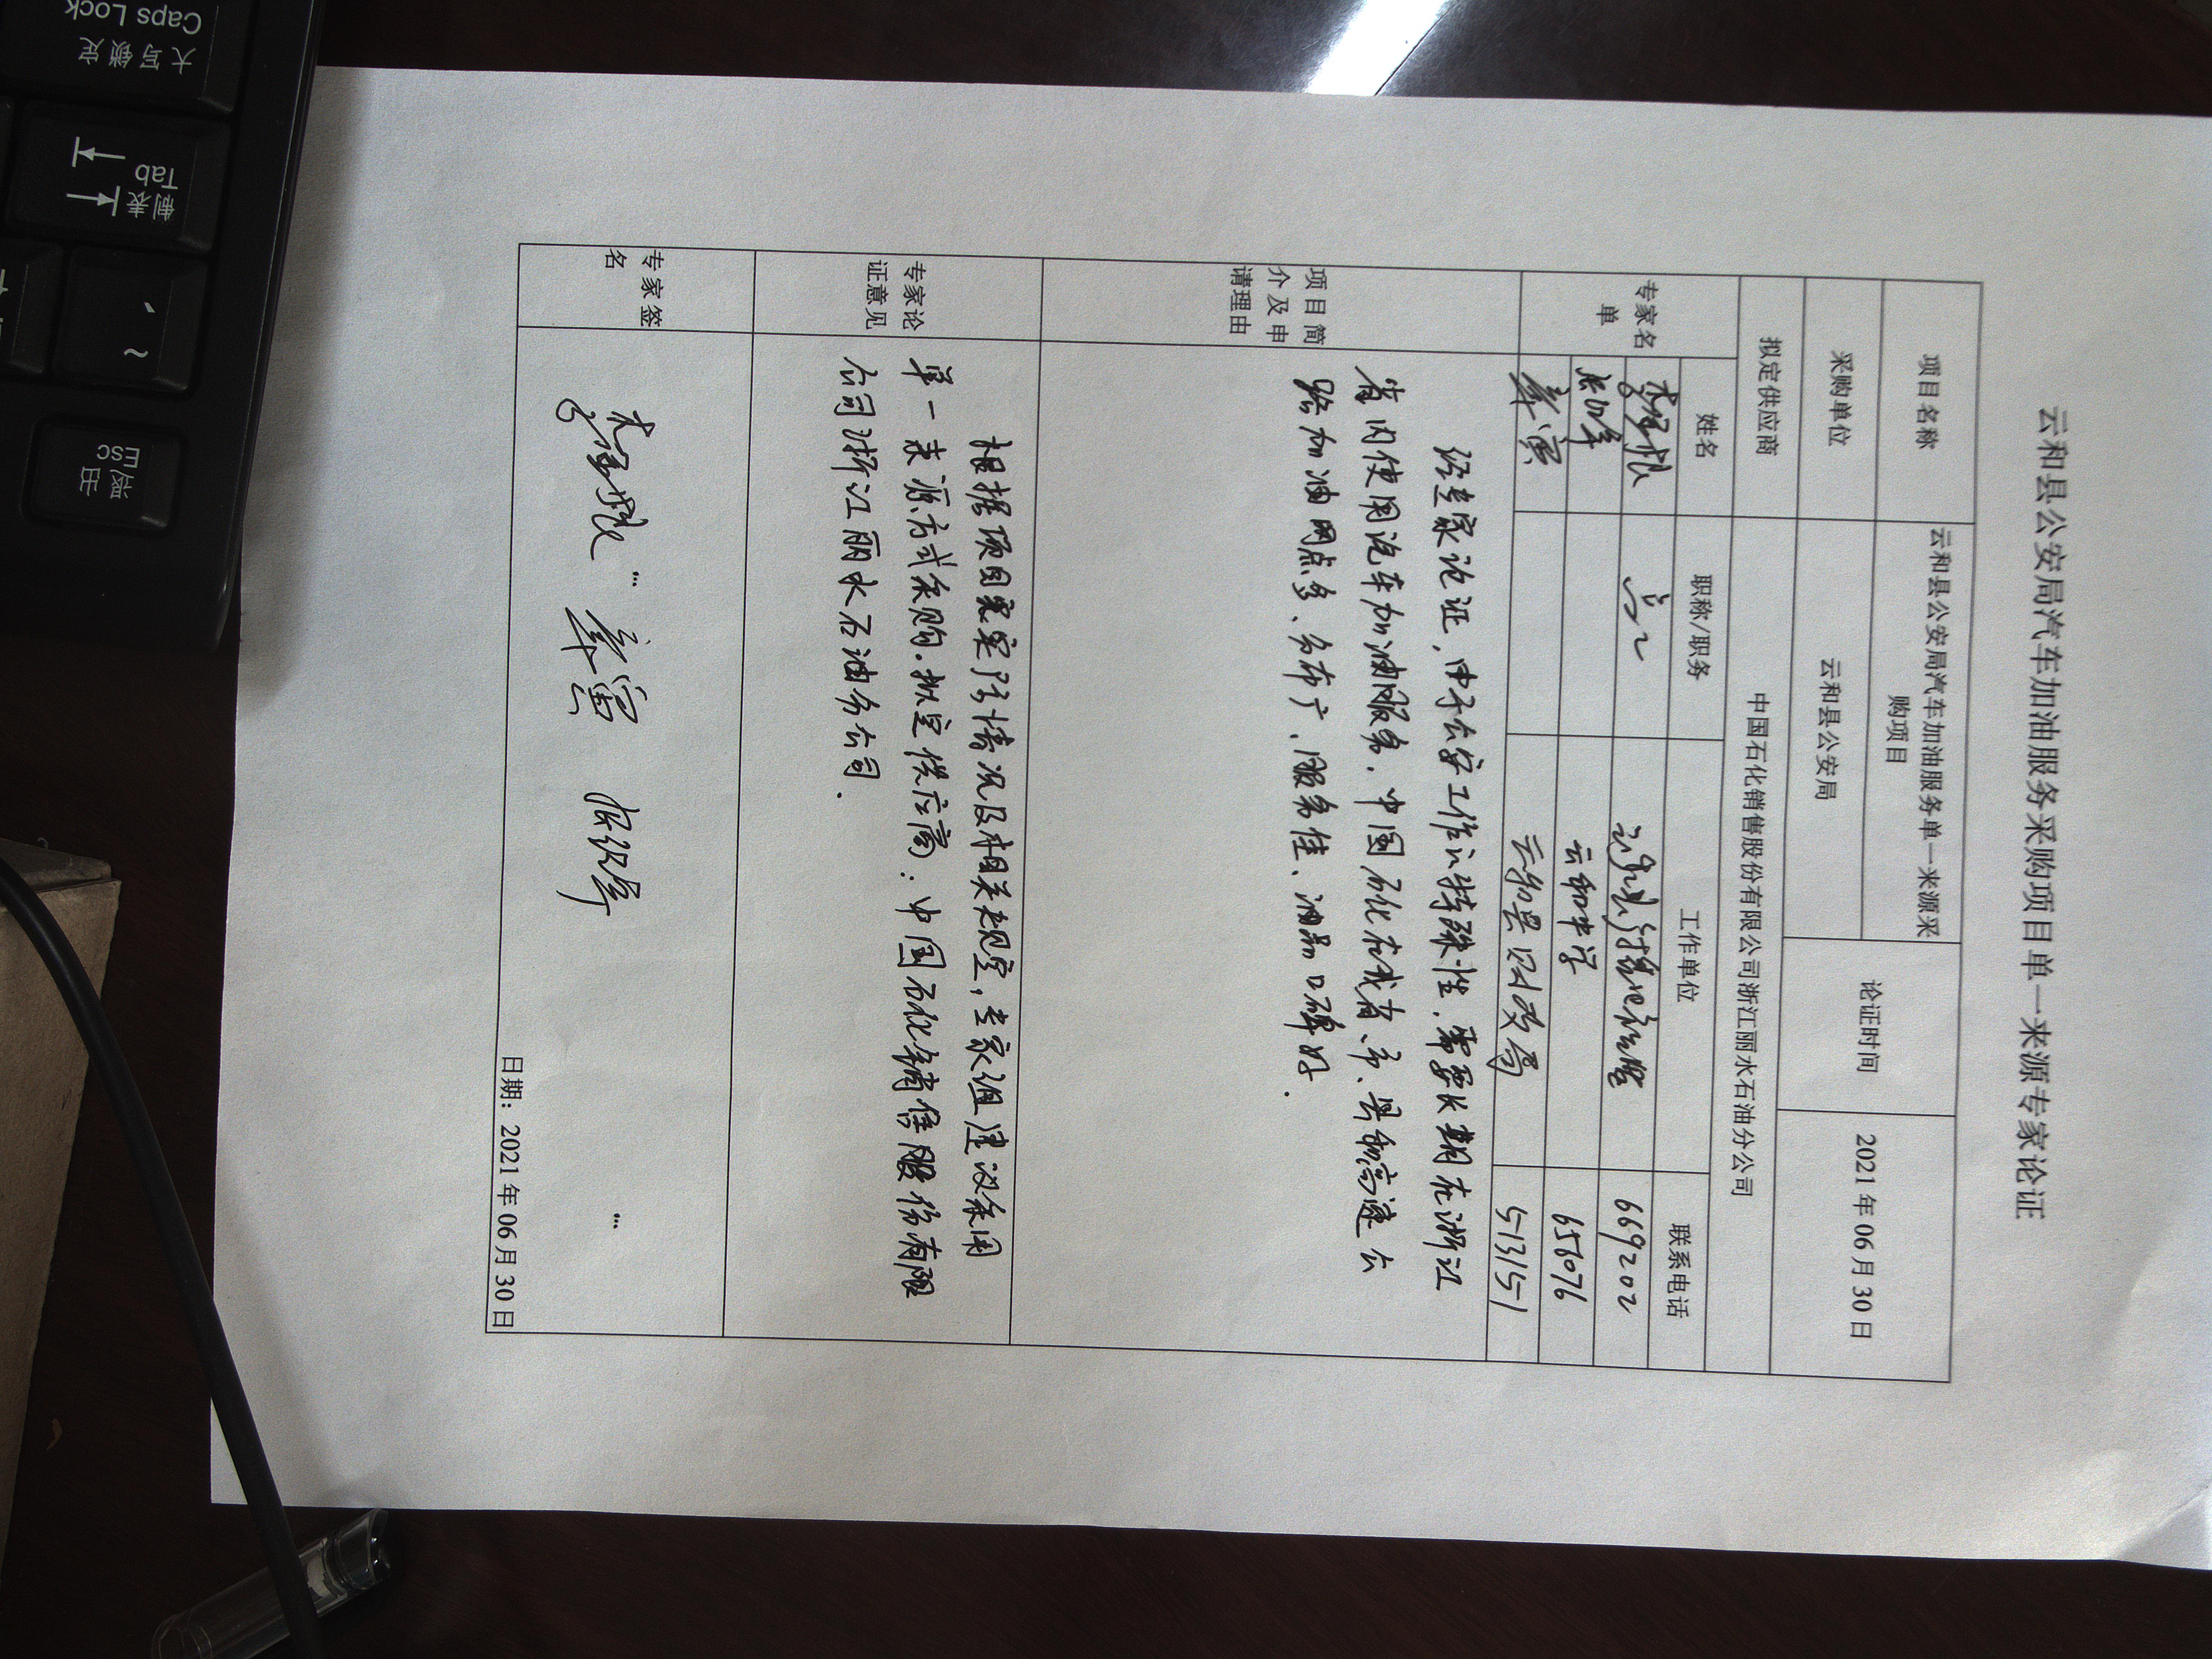 云和县公安局汽车加油服务采购项目单一来源专家论证
项目名称 云和县公安局汽车加油服务单一来源采
购项目
论证时间 2021 年 06 月 30 日
采购单位 云和县公安局
拟定供应商 中国石化销售股份有限公司浙江丽水石油分公司
专家名
单
姓名 职称/职务 工作单位 联系电话
669202
云和中学 656076
云和县财政局 5131151
项目简
介及申
请理由
经专家论证,由于公安工作的特殊性,需要长期在浙江
省内使用汽车加油服务,中国石化在我省、市、县和高速公
路加油网点多、分布广、服务佳、油品口碑好.
专家论
证意见
根据项目实际情况及相关规定,专家组建议采用
单一来源方式采购.拟定供应商:中国石化销售股份有限
公司浙江丽水石油分公司.
专家签
名
日期:2021 年 06 月 30 日
Caps Lock
大写锁定
Tab
制表
~
Esc
退出